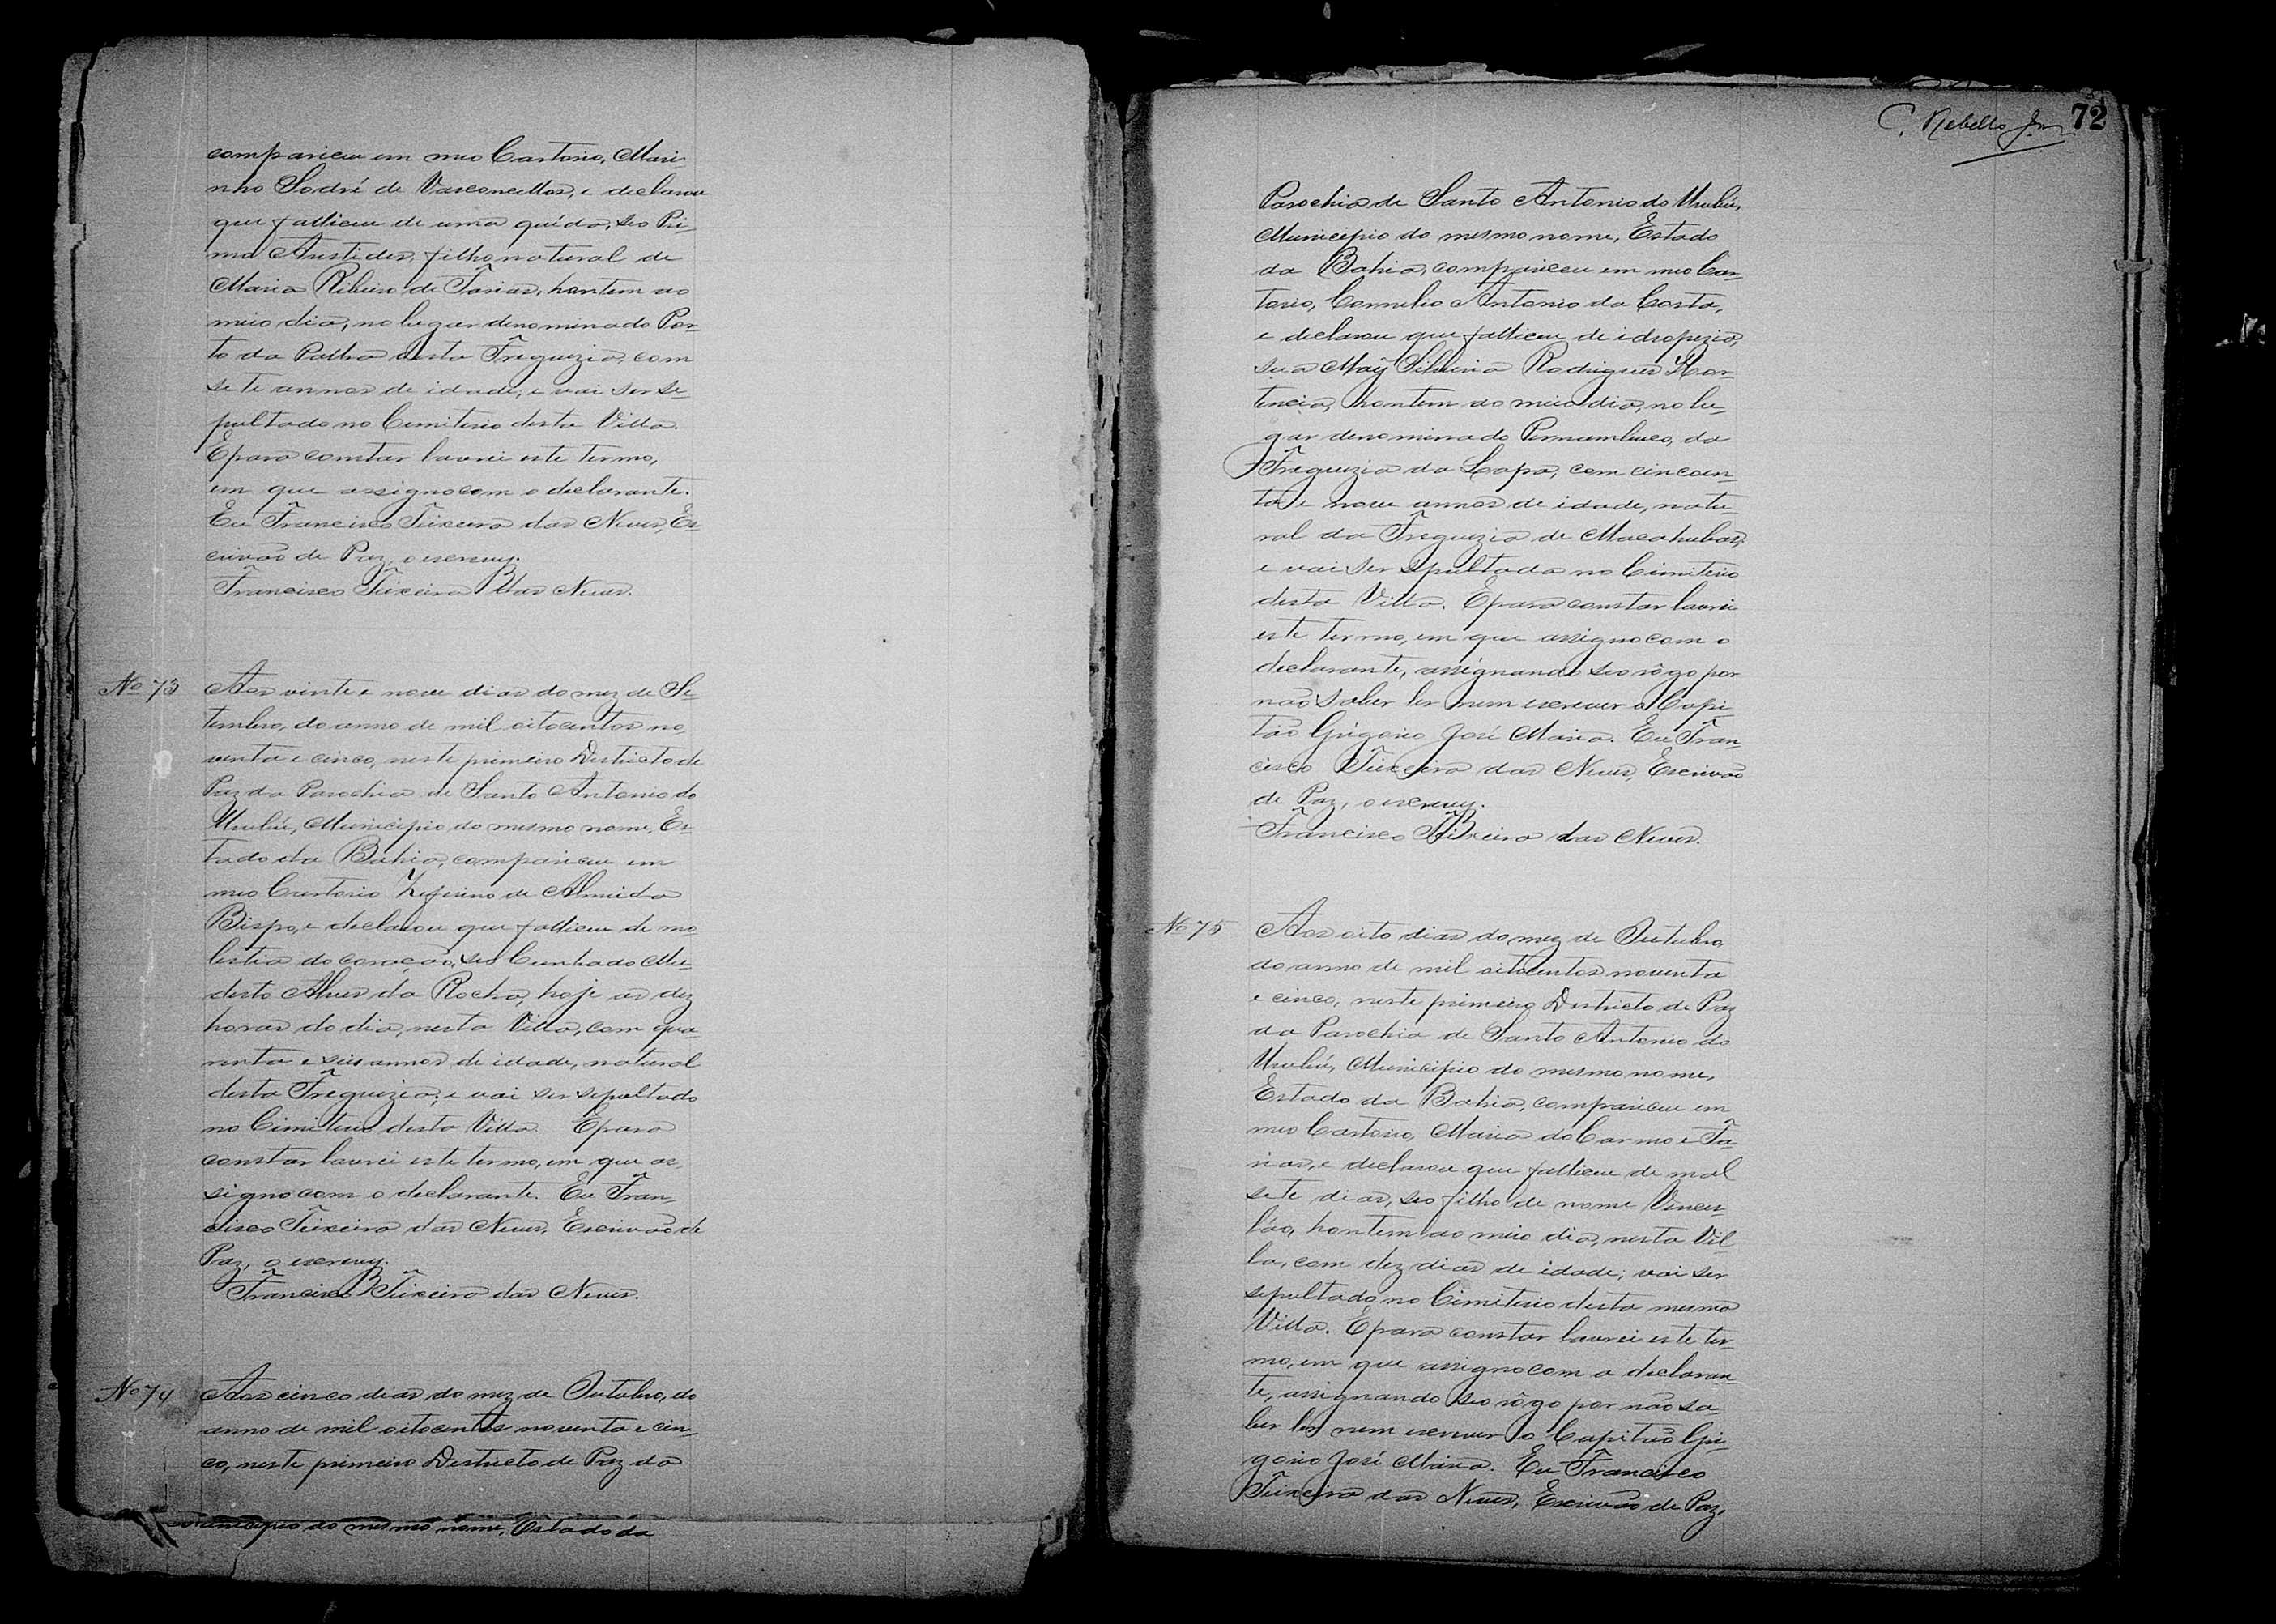 compariceu em meo Cartorio, Mari-
nho Sodré de Vasconcellos, e declarou
que falliceu de uma quéda, seo Pri-
mo Aristides, filho natural de
Maria Ribeiro de Farias, hontem ao
meio dia, no lugar denominado Por-
to da Palha desta Freguizia, com
sete annos de idade; e vai ser se-
pultado no Cimiterio desta Villa.
E para constar lavrei este termo,
em que assigno com o declarante.
Eu Francisco Teixeira das Neves, Es-
crivão de Paz, o escrevy.
Francisco Teixeira das Neves.
No 73
Aos vinte e nove dias do mez de Se-
tembro, do anno de mil oitocentos no
venta e cinco, neste primeiro Destricto de
Paz da Parochia de Santo Antonio do
Urubú, Municipio do mesmo nome, Es-
tado da Bahia, compariceu em
meo Cartorio Zeferino de Almeida
Bispo, e declarou que falliceu de mo-
lestia do coração, seo Cunhado Mo-
desto Alves da Rocha, hoje as dez
horas do dia, nesta Villa, com qua-
renta e seis annos de idade, natural
desta Freguizia; e vai ser sepultado
no Cimiterio desta Villa. E para
constar lavrei este termo, em que as-
signo com o declarante. Eu Fran-
cisco Teixeira das Neves, Escrivão de
Paz, o escrevy.
Francisco Teixeira das Neves.
No 74
Aos cinco dias do mez de Outubro, do
anno de mil oitocentos noventa e cin-
co, neste primeiro Destricto de Paz da
Municipio do mesmo nome, Estado da
C. Rebello Jnr.
72
Parochia de Santo Antonio do Urubú,
Municipio do mesmo nome, Estado
da Bahia, compariceu em meo Car-
torio, Cornelio Antonio da Costa,
e declarou que falliceu de idropezia,
sua Mãy Silvina Rodrigues Hor-
tencia, hontem ao meio dia, no lu-
gar denominado Pernambuco, da
Freguizia da Lapa, com cincoen-
ta e nove annos de idade, natu-
ral da Freguizia de Macahubas,
e vai ser sepultada no Cimiterio
desta Villa. E para constar lavrei
este termo, em que assigno com o
declarante, assignando seo rôgo por
não saber ler nem escrever o Capi-
tão Grigorio José Maria. Eu Fran
cisco Teixeira das Neves, Escrivão
de Paz, o escrevy.
Francisco Teixeira das Neves.
No 75
Aos oito dias do mez de Outubro,
do anno de mil oitocentos noventa
e cinco, neste primeiro Destricto de Paz
da Parochia de Santo Antonio do
Urubú, Municipio do mesmo nome,
Estado da Bahia, compariceu em
meo Cartorio, Maria do Carmo e Fa-
rias, e declarou que falliceu de mal
sete dias, seo filho de nome Vences-
láo, hontem ao meio dia, nesta Vil-
la, com dez dias de idade; vai ser
sepultado no Cimiterio desta mesma
Villa. E para constar lavrei este ter-
mo, em que assigno com a declaran-
te, assignando seo rôgo por não sa-
ber ler nem escrever o Capitão Gri-
gorio José Maria. Eu Francisco
Teixeira das Neves, Escrivão de Paz,